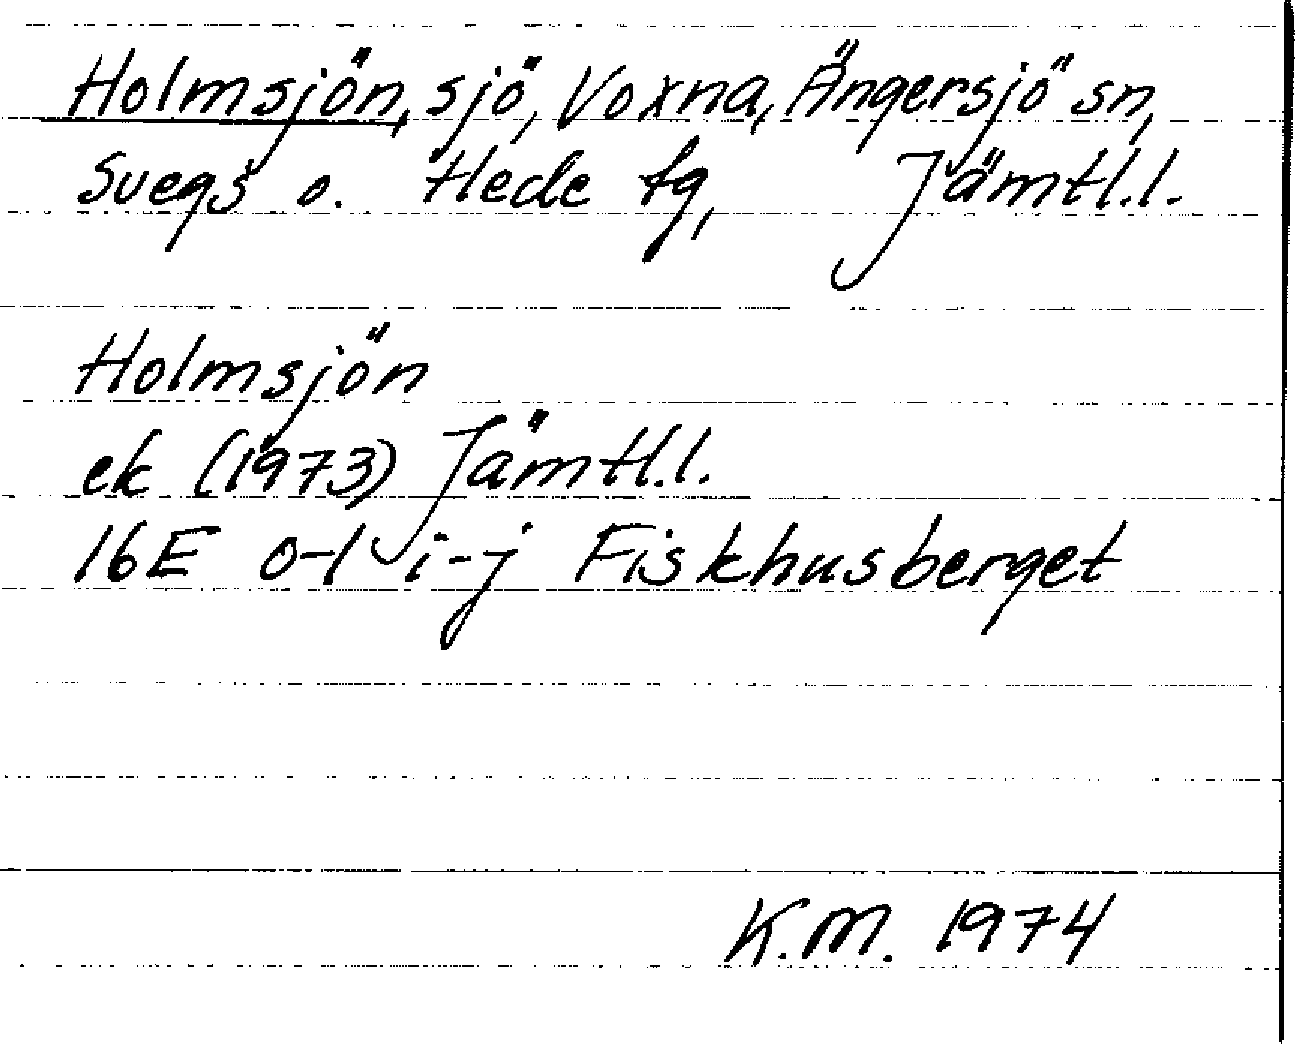 Holmsjön, sjö, Voxna, Ängersjö sn,
Svegs o. Hede tg, Jämtl.l.
Holmsjön
ek (1973) Jämtl.l.
16E 0-1 i-j Fiskhusberget
K.M. 1974